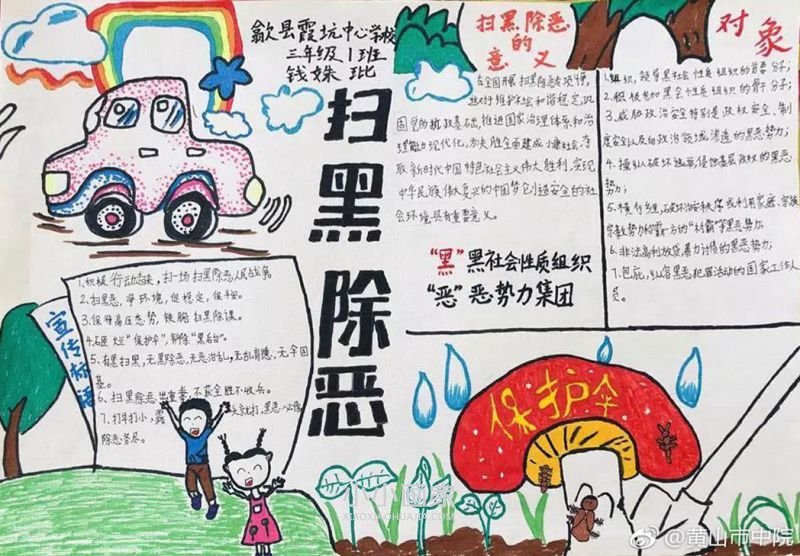 歙县霞坑中心学校
三年级1班
钱姝玭
扫黑除恶
扫黑除恶
的
意义
在全国开展扫黑除恶专项斗争,
巩固党的执政基础,推进国家治理体系和治
理能力现代化,
取新时代中国特色社会主义伟大胜利,实现
中华民族伟大复兴的中国梦创造安全的社
会环境具有重要意义。
“黑”黑社会性质组织
“恶”恶势力集团
对象
1.组织,领导黑社会性质组织的首要分子;
2.积极参加黑社会性质组织的骨干分子;
3.威胁政治安全特别是政权安全、制
度安全以及向政治领域渗透的黑恶势力;
4.操纵破坏选举,侵蚀基层政权的黑恶
势力;
5.横行乡里,破坏治安秩序或利用家庭、宗族
宗教势力称霸一方的“村霸”等黑恶势力;
6.非法高利放贷,暴力讨债的黑恶势力;
7.包庇,纵容黑恶犯罪活动的国家工作人
员。
宣传标语
1.积极行动起来,打一场扫黑除恶人民战争。
2.扫黑恶,净环境,促稳定,保平安。
3.保持高压态势,铁腕扫黑除恶。
4.砸烂“保护伞”,铲除“黑后台”。
5.有黑扫黑,无黑除恶,无恶治乱,
6.扫黑除恶出重拳,不获全胜不收兵。
7.打早打小,露头就打,黑恶必除
除恶务尽。
保护伞
小小画家
XIAOXIAOHUAJIA.COM
@黄山市中院